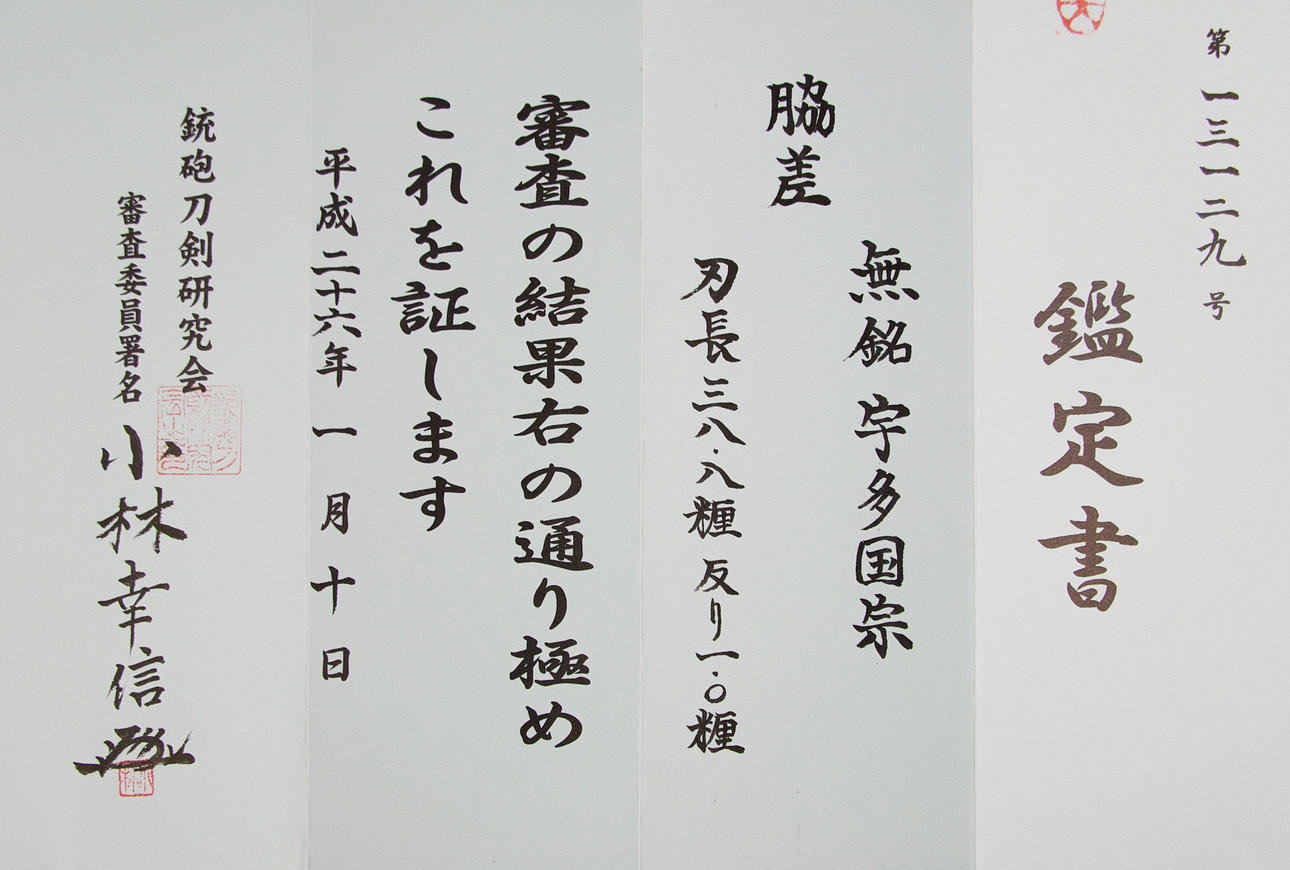 第一三一二九号
鑑定書
無銘 宇多国宗
脇差
刃長三八・八糎 反り一・〇糎
審査の結果右の通り極め
これを証します
平成二十六年一月十日
銃砲刀剣研究会
審査委員署名 小林幸信